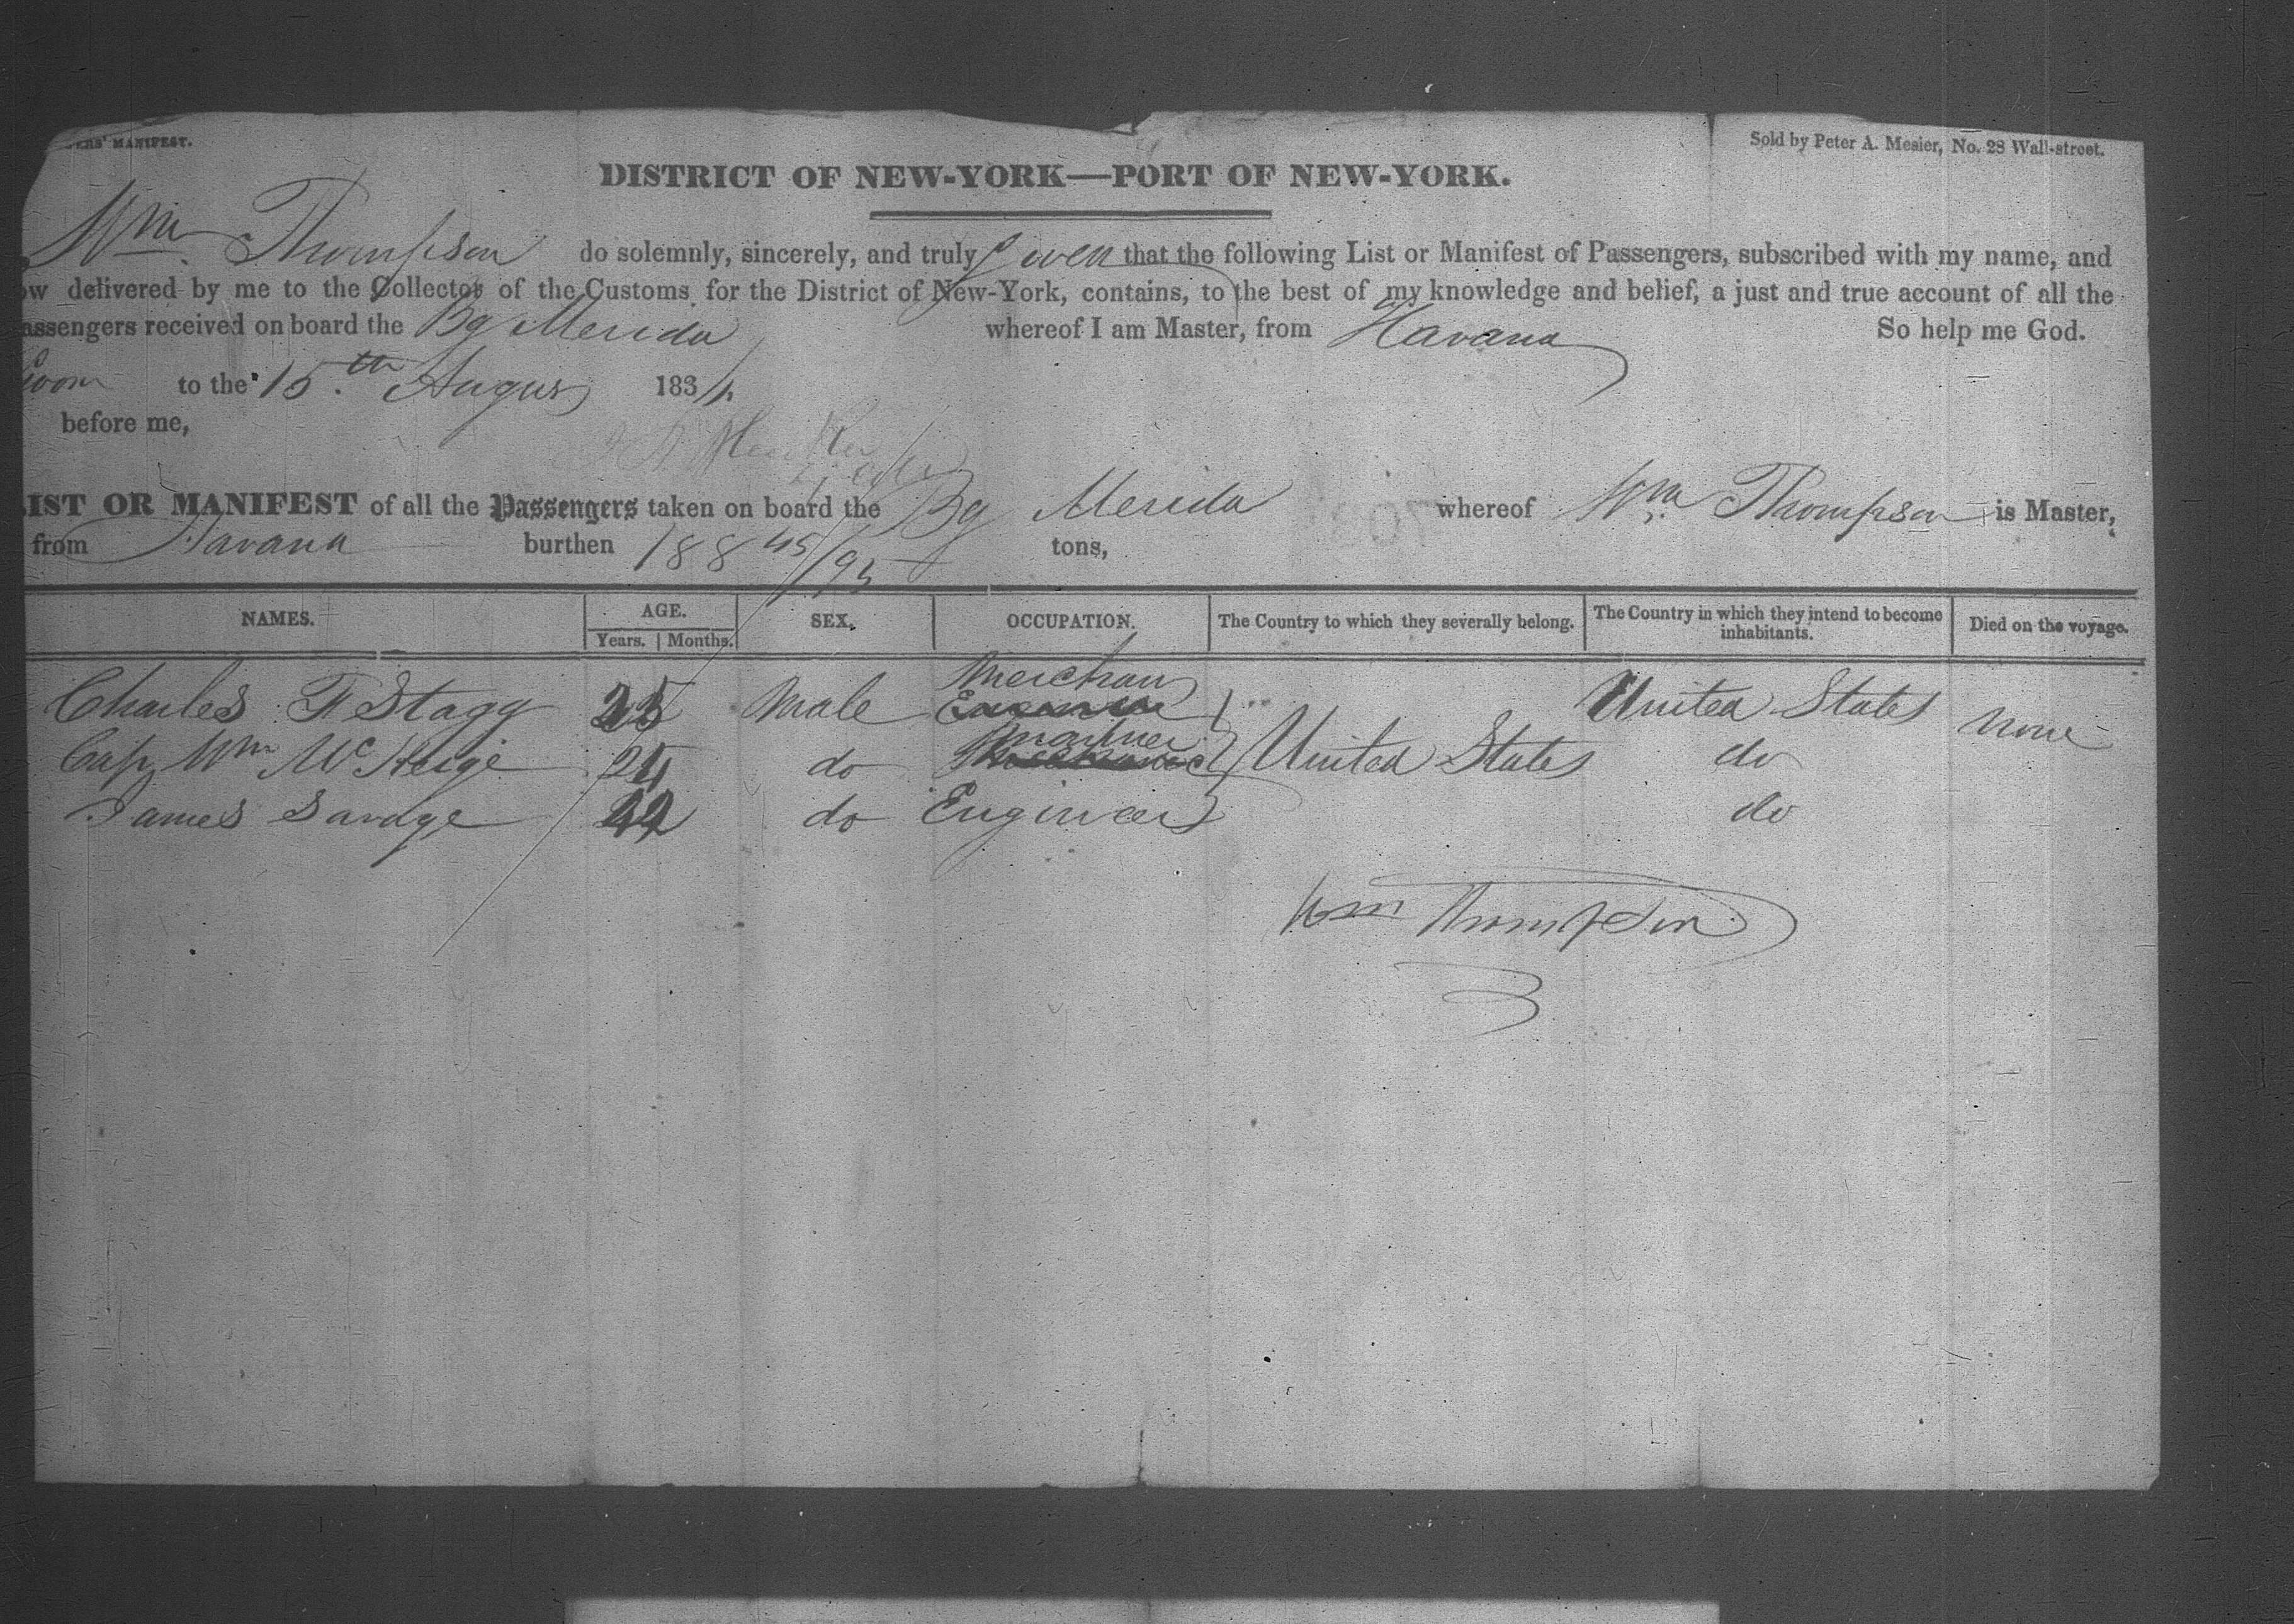 ERS' MANIFEST.
Sold by Peter A. Mesier, No. 28 Wall-street.
DISTRICT OF NEW-YORK—PORT OF NEW-YORK.
Wm Thompson do solemnly, sincerely, and truly swear that the following List or Manifest of Passengers, subscribed with my name, and
ow delivered by me to the Collector of the Customs for the District of New-York, contains, to the best of my knowledge and belief, a just and true account of all the
assengers received on board the Bg Merida whereof I am Master, from Havana So help me God.
to the 15th August 183
before me,
IST OR MANIFEST of all the Passengers taken on board the Bg Merida whereof Wm Thompson is Master,
from Havana burthen 188 45/95 tons,
NAMES. AGE. SEX. OCCUPATION. The Country to which they severally belong. The Country in which they intend to become inhabitants. Died on the voyage.
Years. Months.
Charles F Stagg 25 Male Merchant United States none
Cap Wm 24 do Mariner United States do
James Savage do Engineer do
Wm Thompson